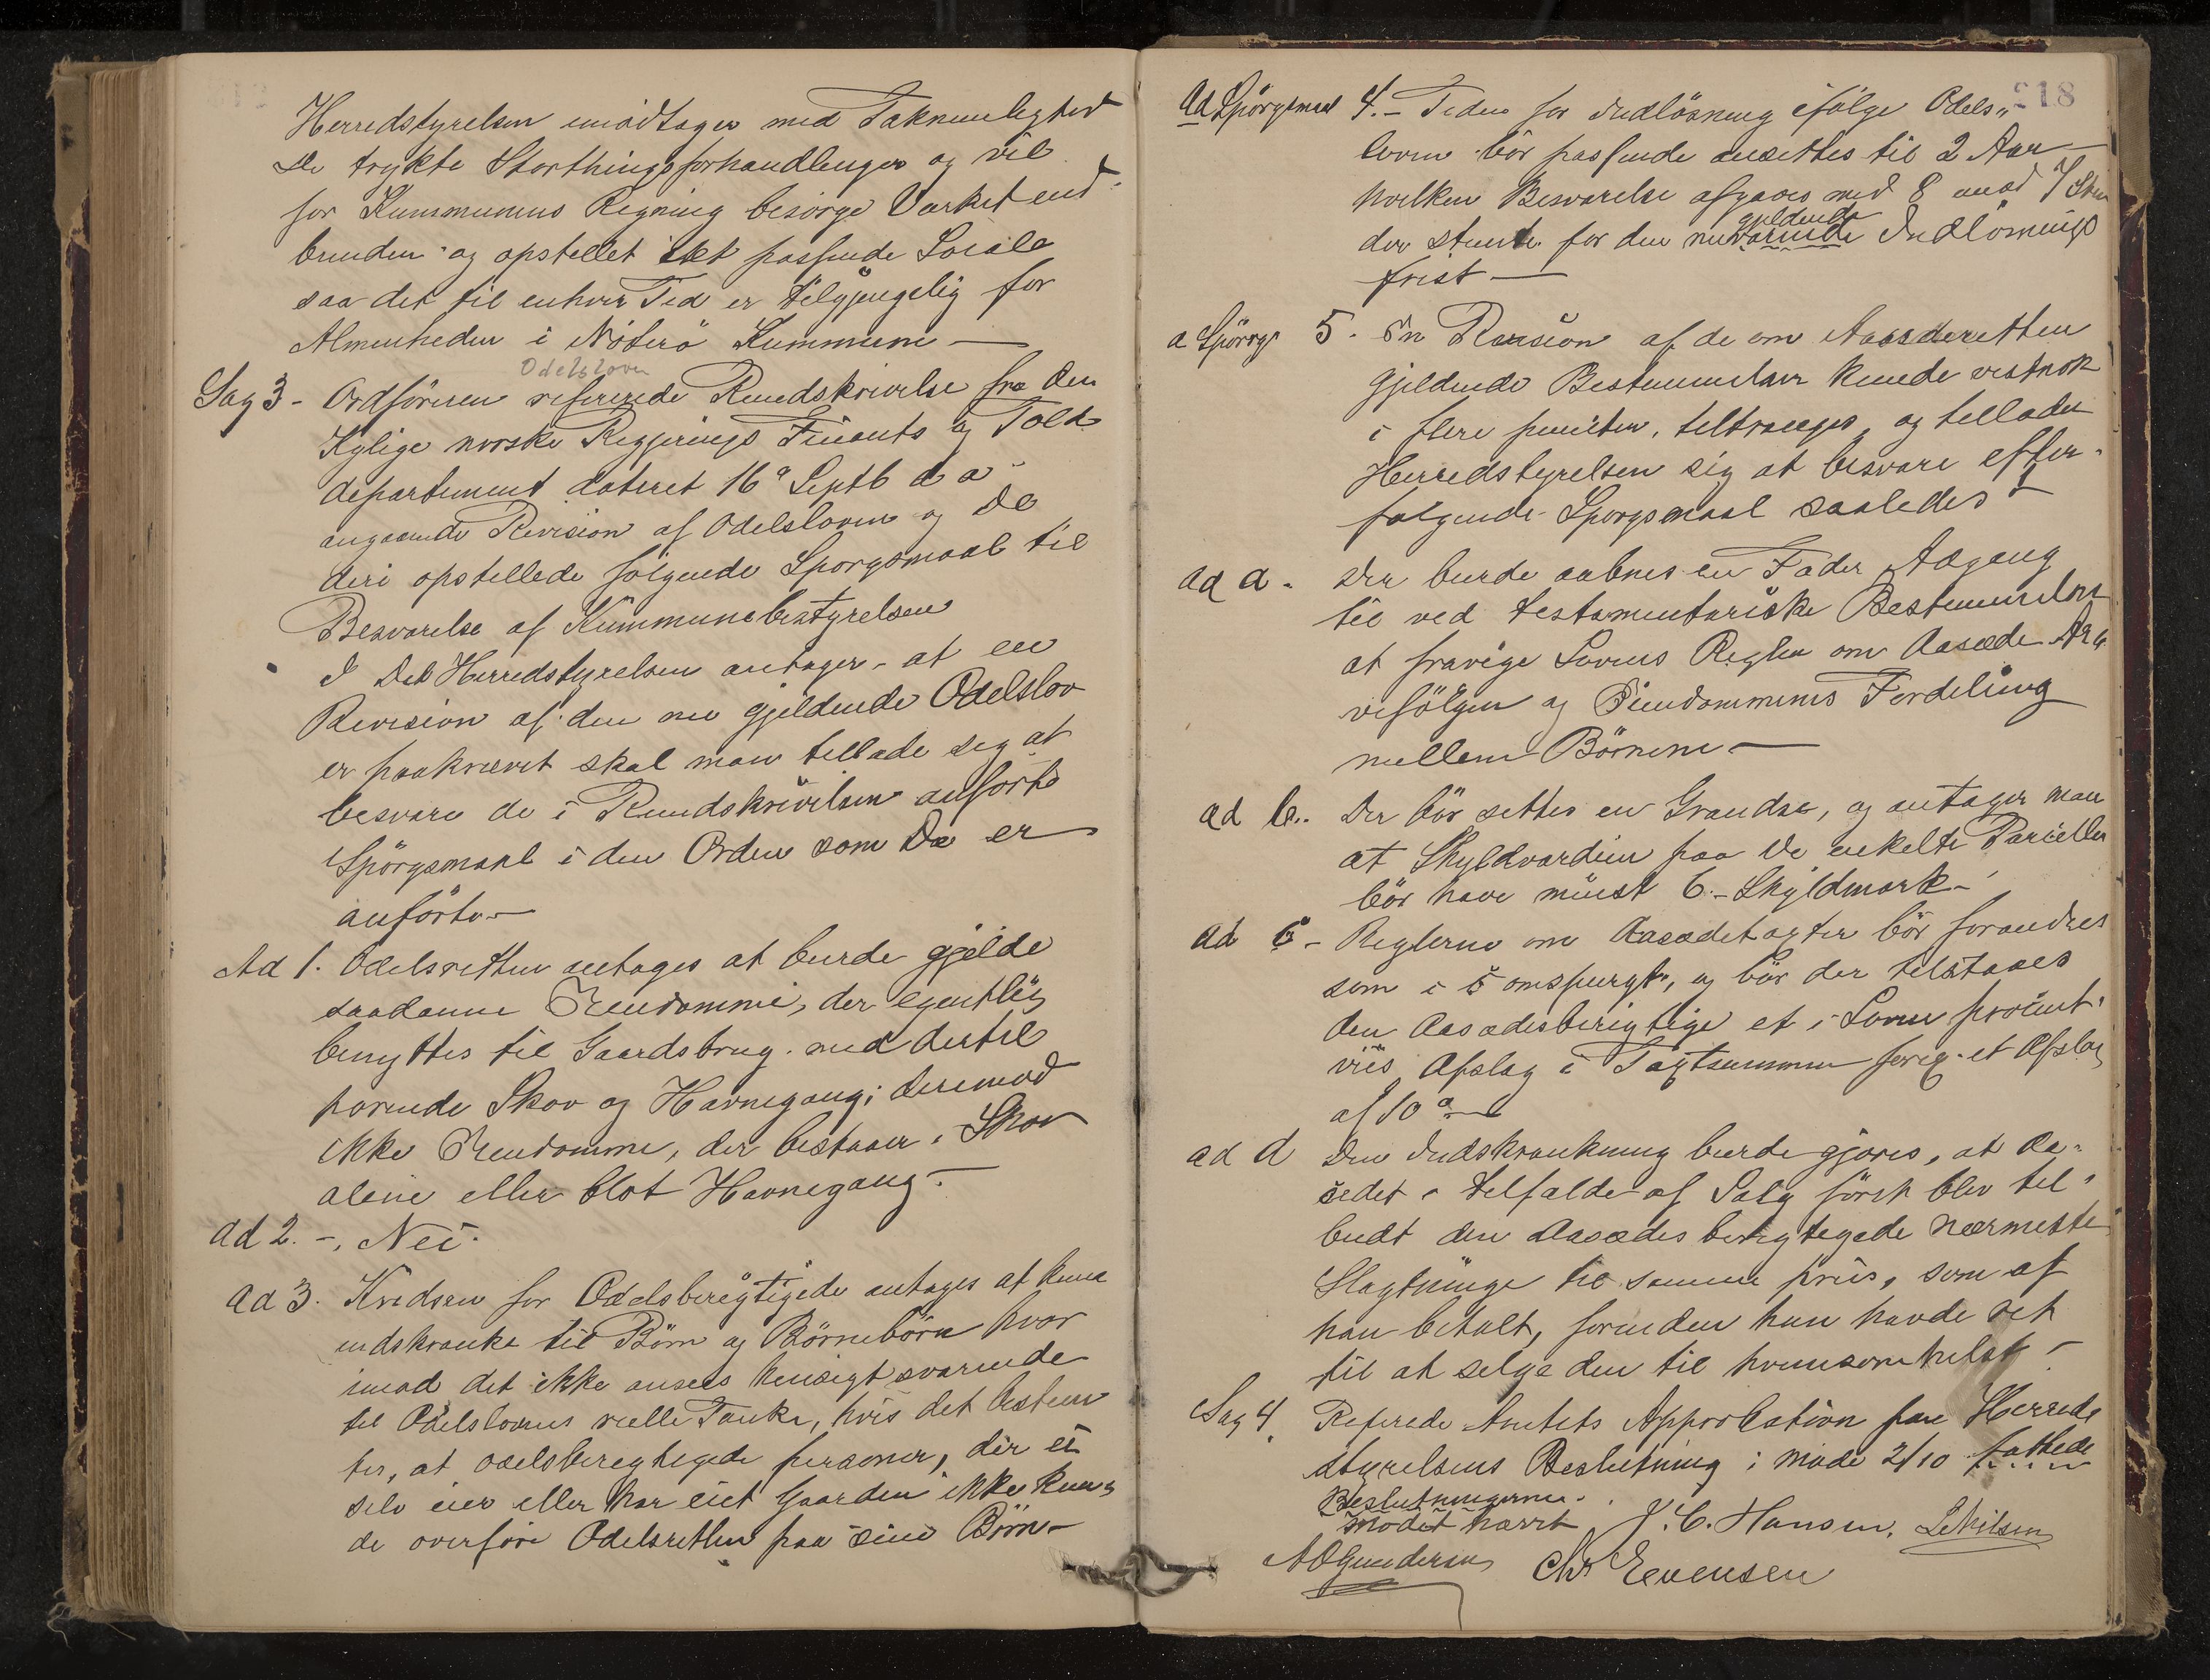 Herredstyrelsen imodtager med Taknemlighed
De trykte Storthingsforhandlinger og vil
for Kummunens Regning besørge Værket ind-
bunden og opstellet i et passende Locale
saa det til enhver Tid er tilgjengelig for
Almenheden i Nøterø Kummune —
Odelsloven
Sag 3 - Ordføreren refererede Rundskrivelse fra den
Kglige norske Regjerings Finants og Told
departement dateret 16de Septb d a
angaaende Revision af Odelsloven og De
deri opstellede følgende Sporgsmaal til
Besvarelse af Kummunebestyrelsen
I Det Herredstyrelsen antager - at en
Revision af den nu gjeldende Odelslov
er paakrævet skal man tellade sig at
besvare de i Rundskrivelsen anførte
Spörgsmaal i den Orden som De er
anførte —
Ad 1. Odelsretten antages at burde gjelde
saadanne Eiendomme, der egentlig
benyttes til Gaardsbrug med dertil
hørende Skov og Havnegang; derimod
ikke Eiendomme, der bestaaer i Skov
alene eller blot Havnegang. -
Ad 2. -, Nei.
Ad 3. Kredsen for Odelsberegtigede antages at kune
indskrænke til Børn og Børnebørn hvor
imod det ikke ansees hensigtsvarende
til Odelslovens reelle Tanke, hvis det bestem
tes, at odelsberegtigede personer, der ei
selv eier eller har eiet Gaarden ikke kun-
de overføre Odelsretten paa sine Børn -
218
Ad Spørgsmaal 4. - Tiden for Indløsning ifølge Odels-
loven bør passende ansettes til 2 Aar —
hvilken Besvarelse afgaves med 8 imod 7 Stem
der stemte for den nu gjeldende
værende Indløsnings
frist —
a Spörgs 5. En Revision af de om Aasædesretten
gjeldende Bestemmelser kunde vistnok
i flere punkter, tiltrænges, og tellader
Herredstyrelsen sig at besvare efter-
følgende Sporgsmaal saaledes —
ad a - Der burde aabnes en Fader Adgang
til ved testamentariske Bestemmelser
at fravige Lovens Regler om Aasæde Ar
vefølgen og Eiendommens Fordeling
mellem Børnene —
ad b.. Der bør settes en Grændse, og antager man
at Skyldværdien paa De enkelte Parceller
bør have minst 6 - Skyldmark -
ad c - Reglerne om Aasædetagter bør forandres
som i 5 omspurgt, og bør der tilstaaes
den Aasædesberigtige et i Loven procent-
viis Afslag i Tagtsummen forig. et Afslag
af 10 %
ad d Den Indskrænkning burde gjøres, at Aa-
sedet i telfælde af Salg først blev til-
budt den Aasædes berigtegede nærmeste
Slægtninge til samme priis, som af
ham betalt, forinden han havde ret
til at selge den til hvemsomhelst -
Sag 4. Referede Amtets Approbation paa Herreds
styrelsens Beslutning i møde 2/10 fattede
Beslutningerne.
Mødet hævet J. C. Hansen. L Nilsen
A O Gundersen Chr Evensen